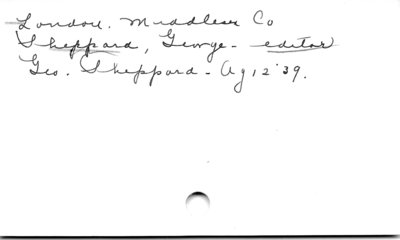 London. Middlesex Co
Sheppard, George - editor
Geo. Sheppard - Ag 12 '39.